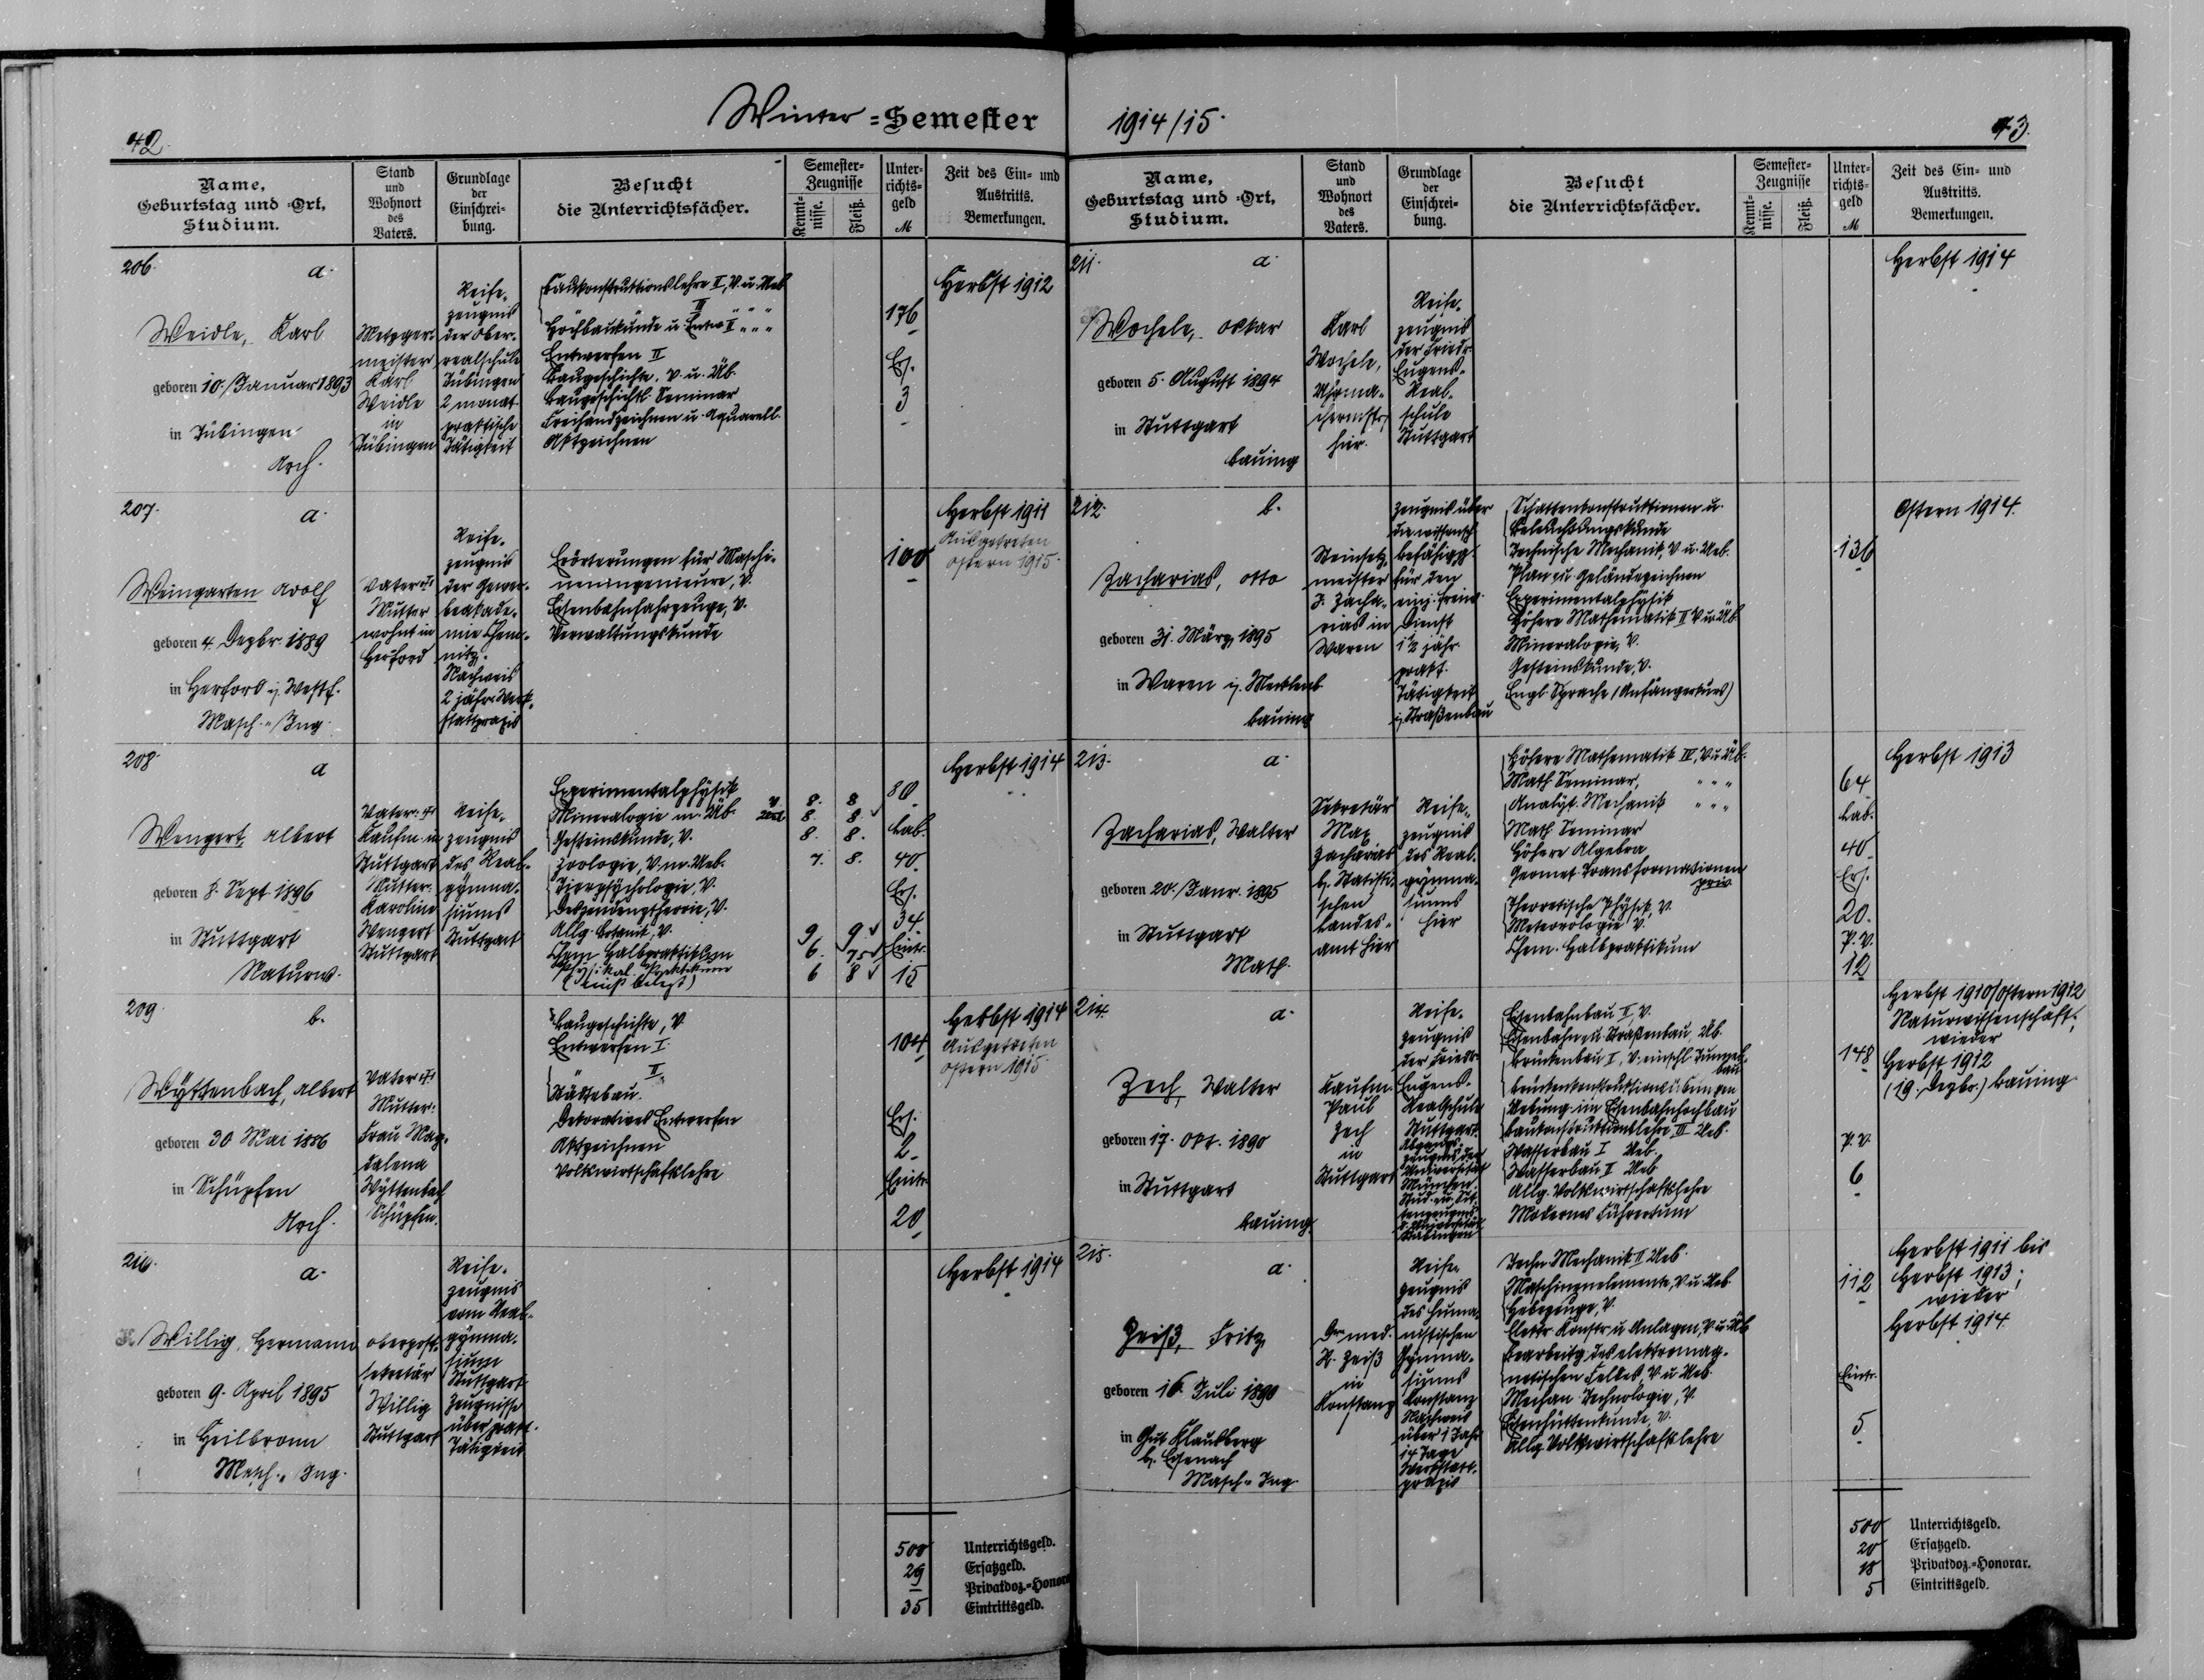 Winter-Semester 1914/15.
42.
Name, Geburtstag und -Ort, Studium.
Stand und Wohnort des Vaters.
Grundlage der Einschreibung.
Besucht die Unterrichtsfächer.
Semester-Zeugnisse
Kenntnisse.
Fleiß.
Unterrichtsgeld M
Zeit des Ein- und Austritts. Bemerkungen.
206.
a.
Weidle, Karl
geboren 10. Januar 1893
in Tübingen
Arch.
Metzger-
meister
Karl
Weidle
in
Tübingen
Reife-
zeugnis
der Ober-
realschule
Tübingen
2 monat.
praktische
Tätigkeit
Baukonstruktionslehre II, V. u. Ueb.
III " " "
Hochbaukunde u. Entw. I " " "
Entwerfen II
Baugeschichte, V. u. Üb.
Baugeschichtl. Seminar
Freihandzeichnen u. Aquarell.
Aktzeichnen
176
Ers.
3
Herbst 1912
207.
a.
Weingarten Adolf
geboren 4. Dezbr. 1889
in Herford i. Westf.
Masch.-Ing.
Vater †
Mutter
wohnt in
Herford
Reife-
zeugnis
der Gewer-
beakade-
mie Chem-
nitz.
Nachweis
2 jähr. Werk-
stattpraxis
Erörterungen für Maschi-
neningenieure, V.
Eisenbahnfahrzeuge, V.
Verwaltungskunde
100
Herbst 1911
Ausgetreten
Ostern 1915.
208.
a
Wengert, Albert
geboren 8. Sept. 1896
in Stuttgart
Naturw.
Vater: †
Kaufm. in
Stuttgart
Mutter:
Karoline
Wengert
Stuttgart
Reife-
zeugnis
des Real-
gymna-
siums
Stuttgart
Experimentalphysik
Mineralogie m. Üb.
Gesteinskunde, V.
Zoologie, V. m. Ueb.
Tierpsychologie, V.
Deszendenztheorie, V.
Allg. Botanik, V.
Chem. Halbpraktikum
Physikal. Praktikum
8. 8
8. 8 ✓
8. 8.
7. 8.
9. 9 ✓
6. 7,5 ✓
6 8 ✓
80
Lab.
40
Ers.
34.
Eintr.
15
Herbst 1914
209.
b.
Wyttenbach, Albert
geboren 30 Mai 1886
in Schüpfen
Arch.
Vater †
Mutter:
Frau Mag-
dalena
Wyttenbach
Schüpfen.
Baugeschichte, V.
Entwerfen I.
" II
Städtebau.
Dekoratives Entwerfen
Aktzeichnen
Volkswirtschaftslehre
104
Ers.
2.
Eintr.
20
Herbst 1914
Ausgetreten
Ostern 1915.
210.
a.
Willig, Hermann
geboren 9. April 1895
in Heilbronn
Masch.-Ing.
Oberpost-
sekretär
Willig
Stuttgart
Reife-
zeugnis
vom Real-
gymna-
sium
Stuttgart
Zeugnisse
über prakt.
Tätigkeit
Herbst 1914
500 Unterrichtsgeld.
29 Ersatzgeld.
– Privatdoz.-Honorar
35 Eintrittsgeld.
43.
Name, Geburtstag und -Ort, Studium.
Stand und Wohnort des Vaters.
Grundlage der Einschreibung.
Besucht die Unterrichtsfächer.
Semester-Zeugnisse
Kenntnisse.
Fleiß.
Unterrichtsgeld M
Zeit des Ein- und Austritts. Bemerkungen.
211.
a.
Wochele, Oskar
geboren 5. August 1894
in Stuttgart
Bauing
Karl
Wochele,
Uhrma-
chermstr.,
hier.
Reife-
zeugnis
der Friedr.
Eugens-
Real-
schule
Stuttgart
Herbst 1914
212.
b.
Zacharias, Otto
geboren 31. März 1895
in Waren i. Mecklenb.
Bauing
Steinsetz-
meister
J. Zacha-
rias in
Waren
Zeugnis über
die wissensch.
Befähigg.
für den
einj. freiw.
Dienst
1½ jähr.
prakt.
Tätigkeit
i. Straßenbau
Schattenkonstruktionen u.
Beleuchtungskunde
Technische Mechanik, V. u. Ueb.
Plan- u. Geländezeichnen
Experimentalphysik
Höhere Mathematik II V. u. Üb.
Mineralogie, V.
Gesteinskunde, V.
Engl. Sprache (Anfängerkurs)
136
Ostern 1914.
213.
a.
Zacharias, Walter
geboren 20. Janr. 1895
in Stuttgart
Math.
Sekretär
Max
Zacharias
b. Statisti-
schen
Landes-
amt hier
Reife-
zeugnis
des Real-
gymna-
siums
hier
Höhere Mathematik IV, V. u. Üb.
Math. Seminar, " " "
Analyt. Mechanik " " "
Math. Seminar
Höhere Algebra
Geomet. Transformationen
priv.
Theoretische Physik, V.
Meteorologie V.
Chem. Halbpraktikum
64
Lab.
40.
Ers.
20.
P. V.
12
Herbst 1913
214.
a.
Zech, Walter
geboren 17. Okt. 1890
in Stuttgart
Bauing.
Kaufm.
Paul
Zech
in
Stuttgart
Reife-
zeugnis
der Friedr.
Eugens-
Realschule
Stuttgart.
Abgangs-
zeugnis der
Universität
München.
Stud. u. Sit-
tenzeugnis
d. Universität
Tübingen
Eisenbahnbau II, V.
Eisenbahn- u. Straßenbau, Üb.
Brückenbau I, V. einschl. Tunnel-
bau
Brückenkonstruktionsübungen
Uebung im Eisenbahnhochbau
Baukonstruktionslehre III Ueb.
Wasserbau I Ueb.
Wasserbau II Ueb.
Allg. Volkswirtschaftslehre
Modernes Führertum
148
P. V.
6
Herbst 1910/Ostern 1912
Naturwissenschaft;
wieder
Herbst 1912
(19. Dezbr.) Bauing.
215.
a.
Zeiß, Fritz
geboren 16. Juli 1890
in Gut Klausberg
b. Eisenach
Masch.-Ing.
Dr. med.
H. Zeiß
in
Konstanz
Reife-
zeugnis
des huma-
nistischen
Gymna-
siums
Konstanz
Nachweis
über 1 Jahr
14 Tage
Werkstatt-
praxis
Techn. Mechanik II Ueb.
Maschinenelemente, V. u. Ueb.
Hebezeuge, V.
Elektr. Konstr. u. Anlagen, V. u. Üb.
Bearbeitg. des elektromag-
netischen Feldes V. u. Ueb.
Mechan. Technologie, V.
Eisenhüttenkunde, V.
Allg. Volkswirtschaftslehre
112
Eintr.
5
Herbst 1911 bis
Herbst 1913;
wieder
Herbst 1914.
500 Unterrichtsgeld.
20 Ersatzgeld.
18 Privatdoz.-Honorar.
5 Eintrittsgeld.